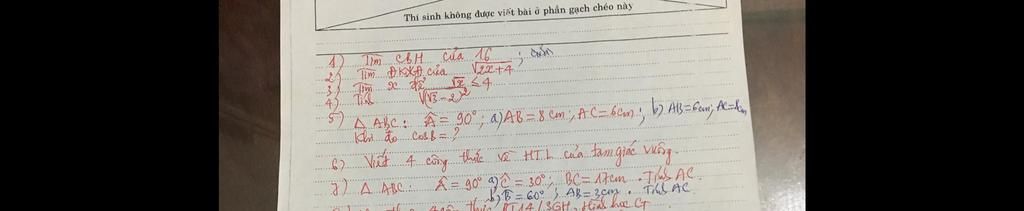 Thí sinh không được viết bài ở phần gạch chéo này
1) Tìm CBH của 16 ;
2) Tìm ĐKXĐ của √2x+4
3) Tìm x để √x ≤ 4
4) Tính √(√3-2)²
5) Δ ABC: Â = 90°; a) AB = 8cm; AC = 6cm; b) AB = 6cm; AC = 8cm
Khi đó cosB = ?
6) Viết 4 công thức về HTL của tam giác vuông.
7) Δ ABC: Â = 90° a) Ĉ = 30°; BC = 17cm. Tính AC.
b) B̂ = 60°; AB = 3cm. Tính AC